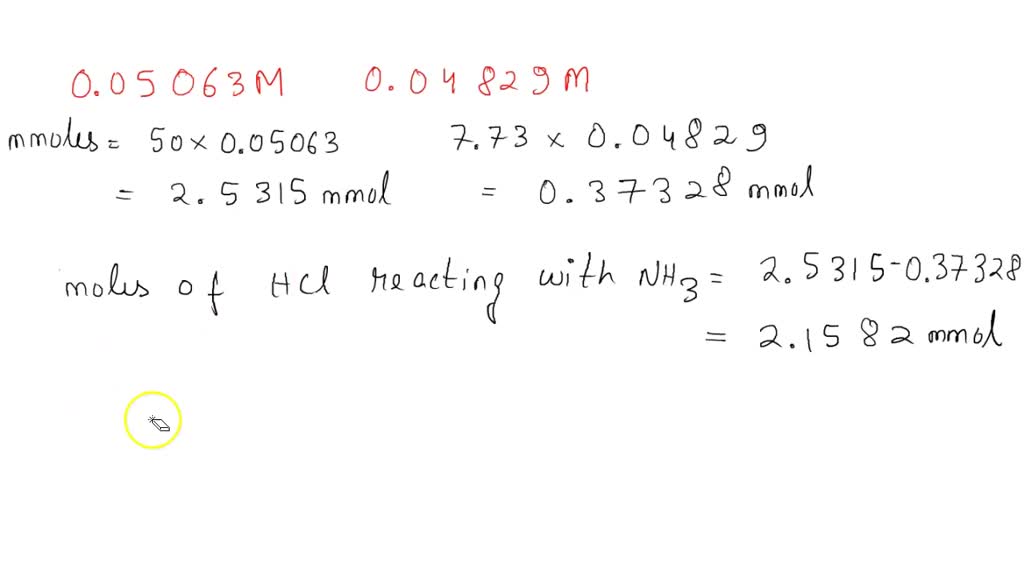 0.05063M 0.04829M
mmoles = 50 × 0.05063 7.73 × 0.04829
= 2.5315 mmol = 0.37328 mmol
moles of HCl reacting with NH3 = 2.5315-0.37328
= 2.1582 mmol